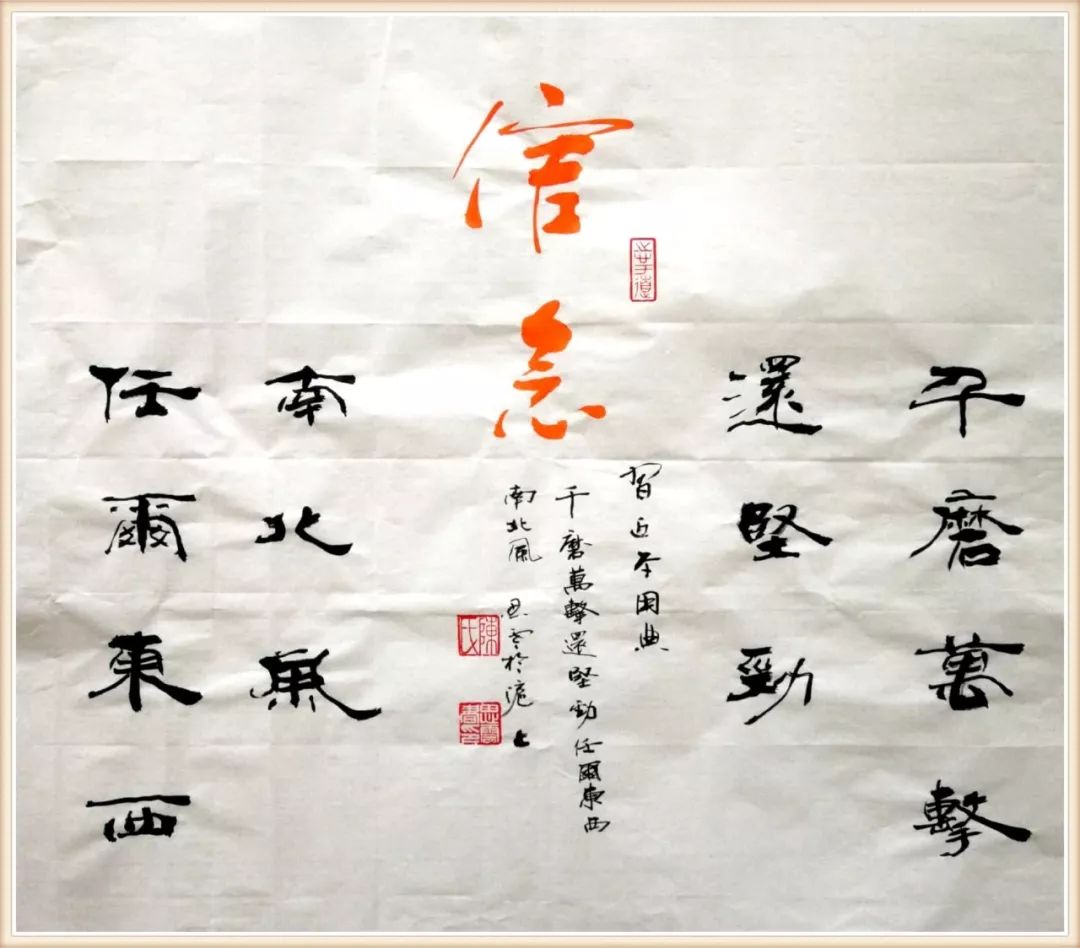 信念
千磨萬擊
還堅勁
任爾東西
南北風
習近平用典
千磨萬擊還堅勁任爾東西
南北風 思雲於滬上
陳氏
思雲書印